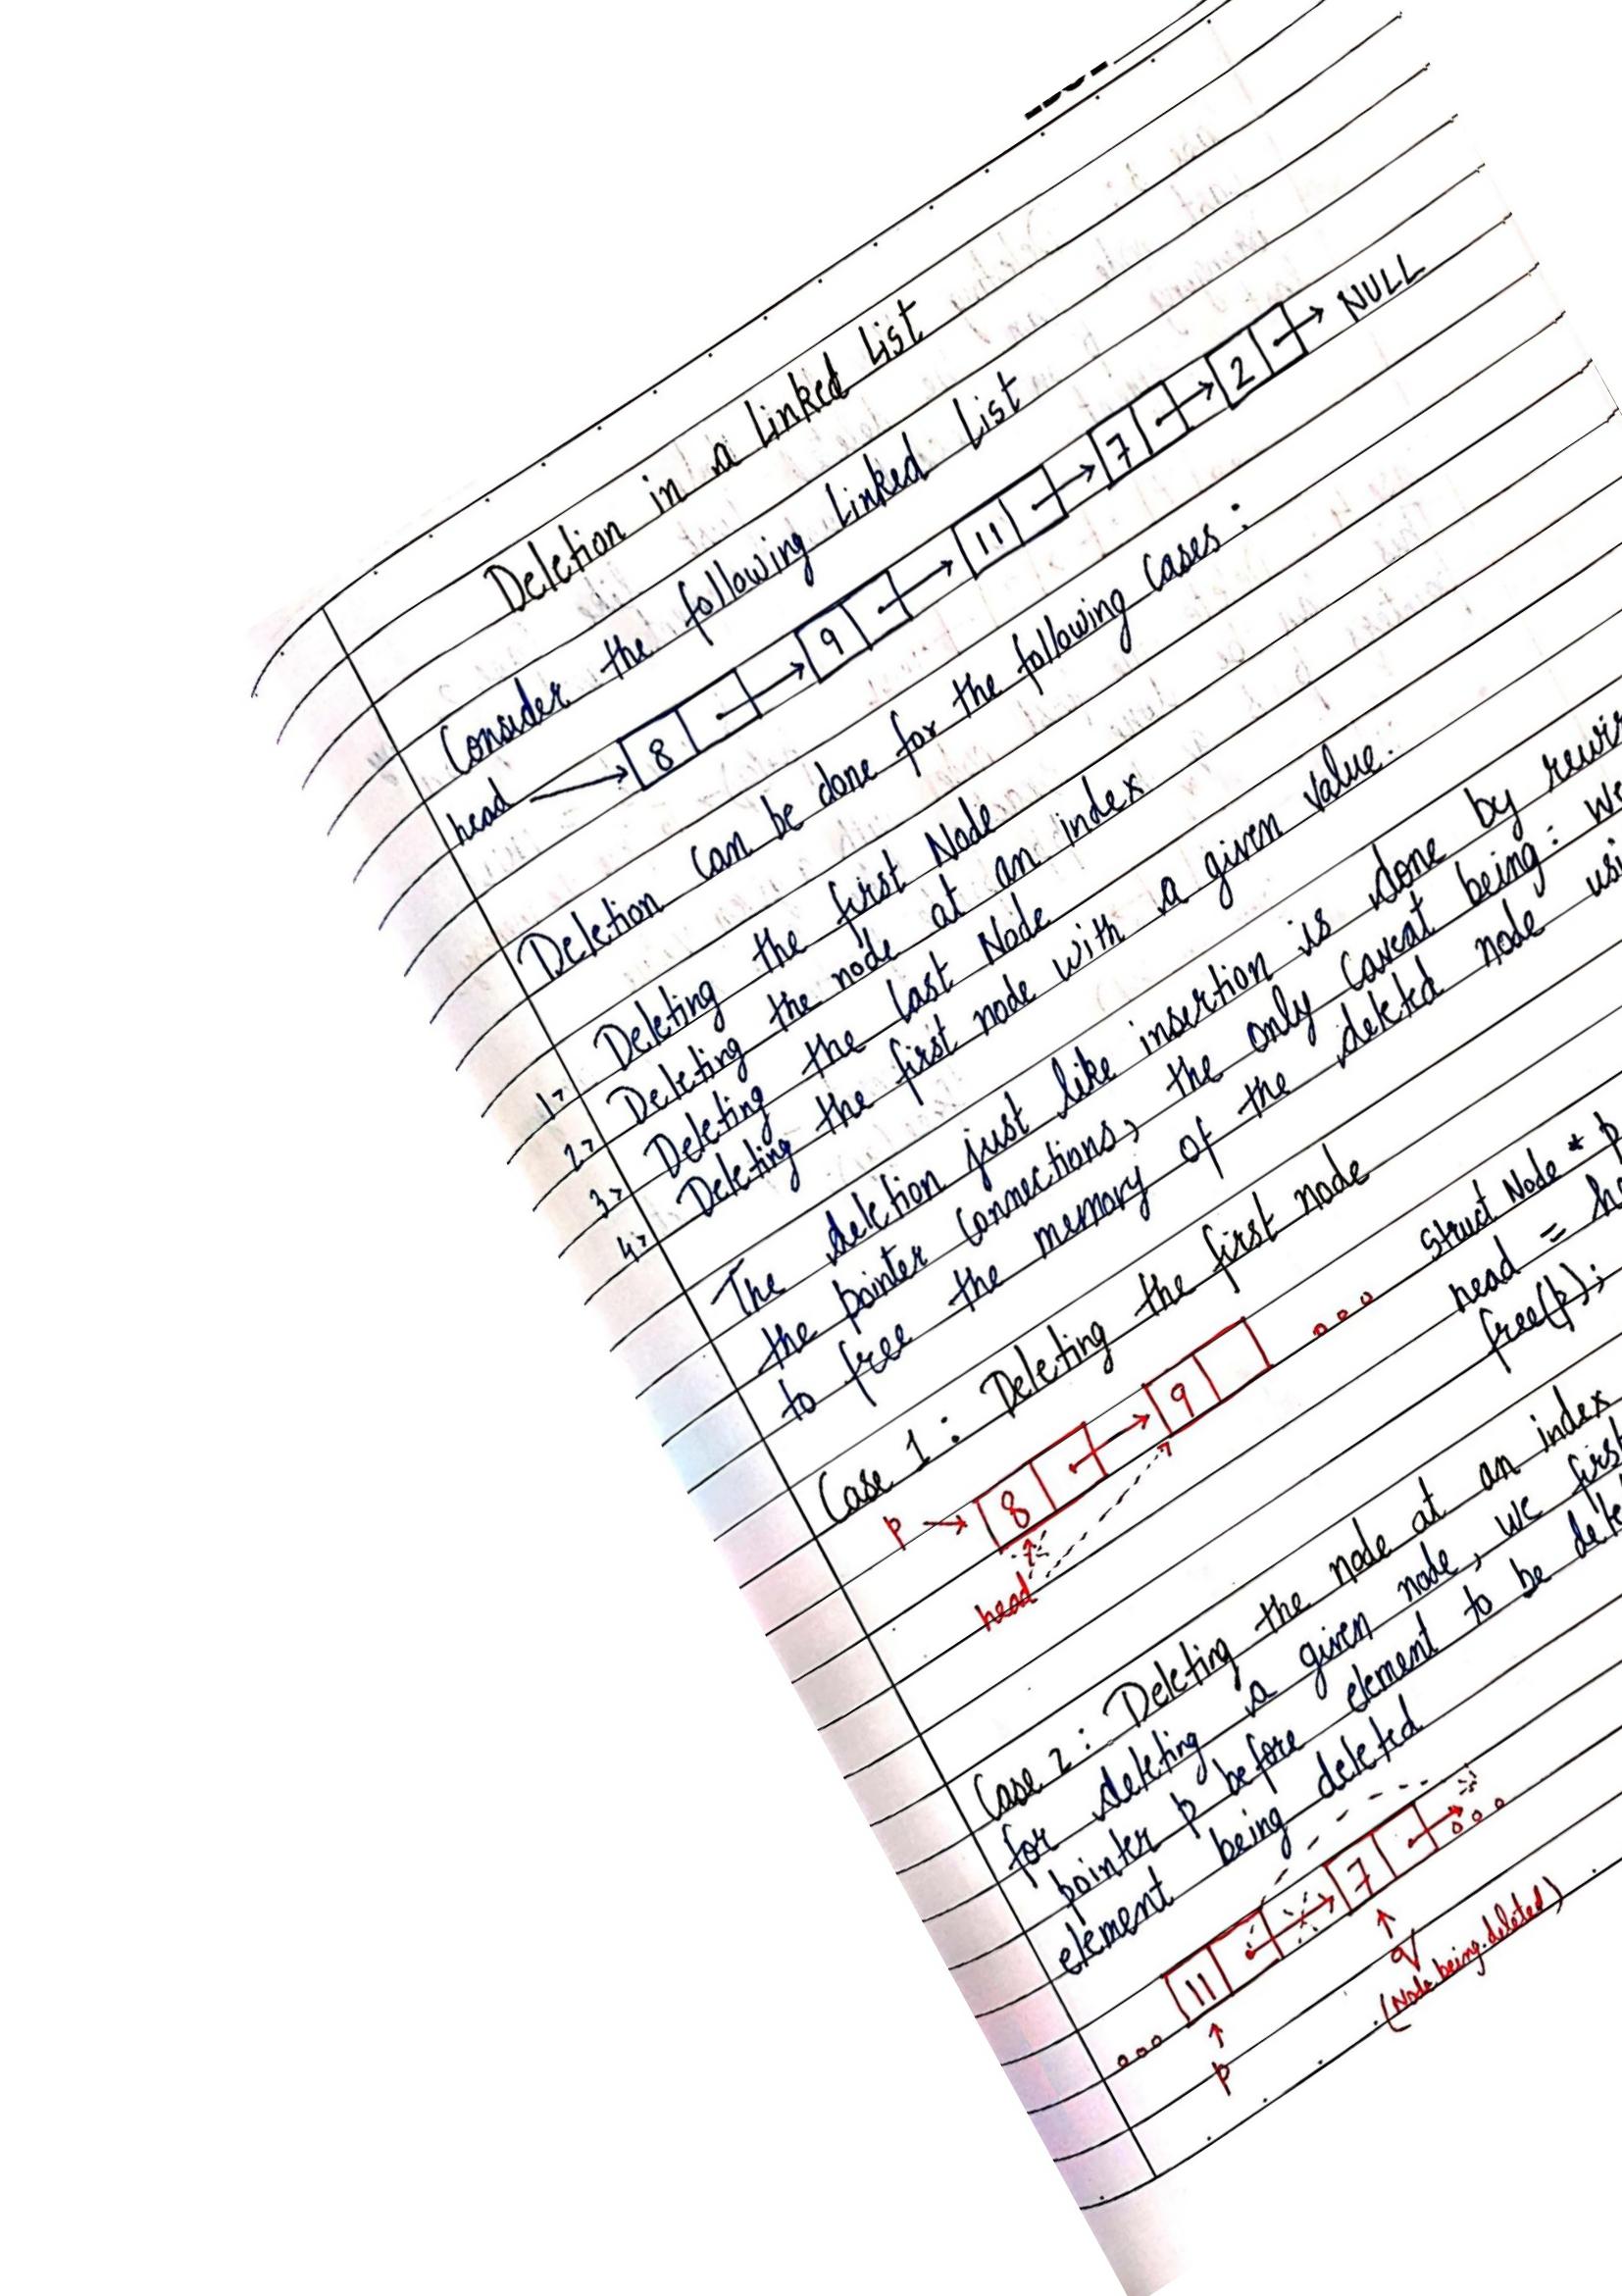 Deletion in a Linked List
Consider the following Linked List
head → 8 → 9 → 11 → 7 → 2 → NULL
Deletion can be done for the following cases :
1> Deleting the first Node
2> Deleting the node at an index
3> Deleting the last Node
4> Deleting the first node with a given value.
The deletion just like insertion is done by
the pointer connections, the only caveat being :
to free the memory of the deleted node
Case 1 : Deleting the first node
struct Node *
p → 8 → 9 ooo
head =
free(p);
head
Case 2 : Deleting the node at an index
for deleting a given node, we
pointer p before element to be
element being deleted
ooo 11 → 7 → ooo
p
q
(Node being deleted)